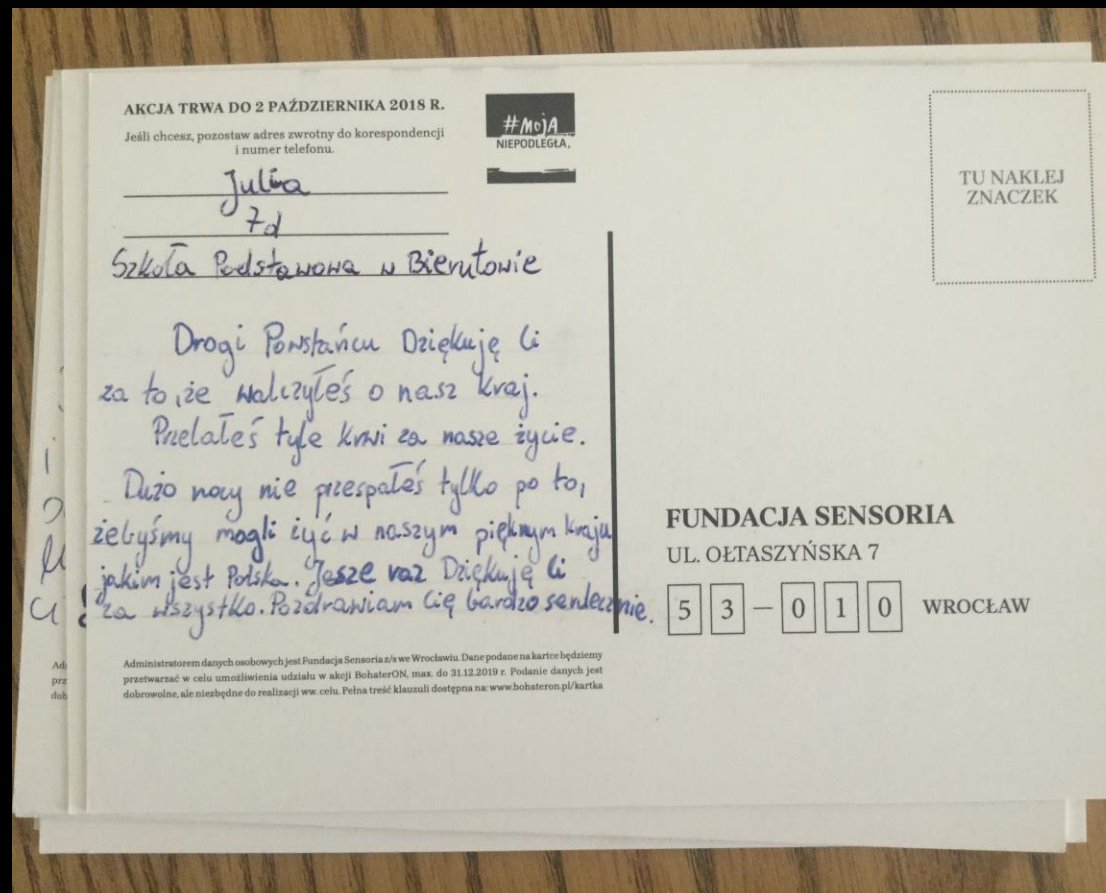 AKCJA TRWA DO 2 PAŹDZIERNIKA 2018 R.
Jeśli chcesz, pozostaw adres zwrotny do korespondencji
i numer telefonu.
#MOJA
NIEPODLEGŁA.
TU NAKLEJ
ZNACZEK
Julia
7d
Szkoła Podstawowa w Bierutowie
Drogi Powstańcu Dziękuję Ci
za to, że walczyłeś o nasz kraj.
Przelałeś tyle krwi za nasze życie.
Dużo nocy nie przespałeś tylko po to,
żebyśmy mogli żyć w naszym pięknym kraju
jakim jest Polska. Jesze raz Dziękuję Ci
za wszystko. Pozdrawiam Cię bardzo serdecznie.
FUNDACJA SENSORIA
UL. OŁTASZYŃSKA 7
53-010 WROCŁAW
Administratorem danych osobowych jest Fundacja Sensoria z/s we Wrocławiu. Dane podane na kartce będziemy
przetwarzać w celu umożliwienia udziału w akcji BohaterON, max. do 31.12.2019 r. Podanie danych jest
dobrowolne, ale niezbędne do realizacji ww. celu. Pełna treść klauzuli dostępna na: www.bohateron.pl/kartka